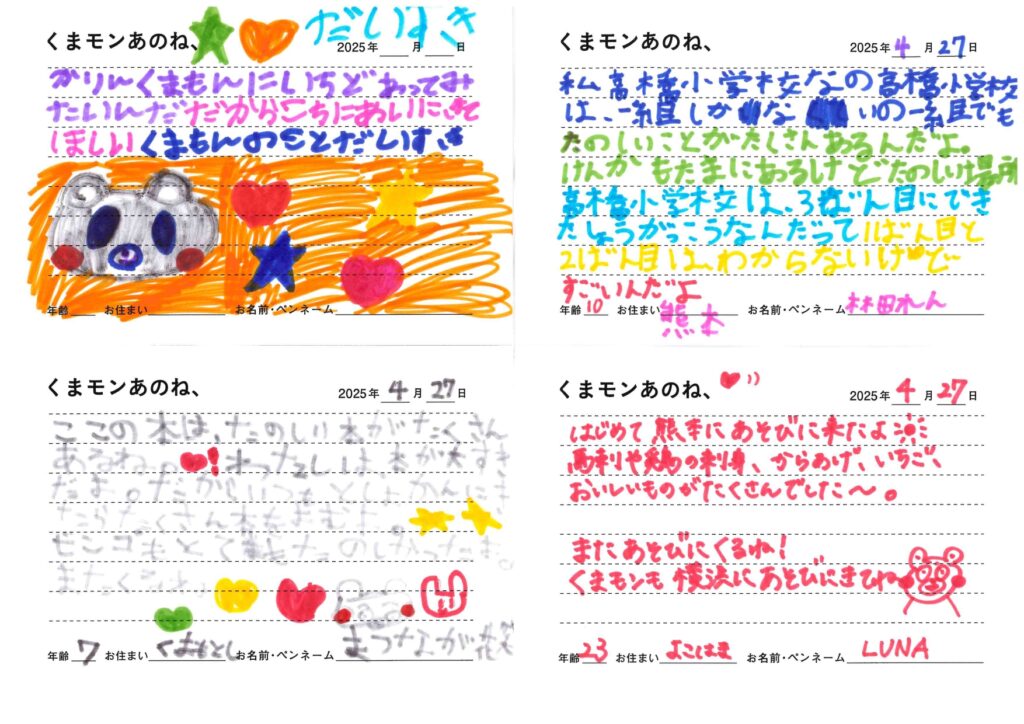 くまモンあのね、
だいすき
2025年 月 日
かりんくまもんにいちどあってみ
たいんだだからこちにあいにきて
ほしいくまもんのことだいすき
年齢 お住まい お名前・ペンネーム
くまモンあのね、
2025年 4 月 27 日
私高橋小学校なの高橋小学校
は、一組しかないの一組でも
たのしいことがたくさんあるんだよ。
けんかもたまにあるけどたのしい場所
高橋小学校は、3ばん目にでき
たしょうがっこうなんだって1ばん目と
2ばん目は、わからないけど
すごいんだよ
年齢 10 お住まい 熊本 お名前・ペンネーム 林田れん
くまモンあのね、
2025年 4 月 27 日
ここの本は、たのしい本がたくさん
あるね。!わたしは本が大すき
だよ。だからいつもとしょかんにき
たらたくさん本をよむよ。
ビンゴもとてもたのしかったよ。
またくるね
年齢 7 お住まい くまもとし お名前・ペンネーム まつなが
くまモンあのね、
2025年 4 月 27 日
はじめて熊本にあそびに来たよ
馬刺や鶏の刺身、からあげ、いちご、
おいしいものがたくさんでした〜。
またあそびにくるね!
くまモンも横浜にあそびにきてね
年齢 23 お住まい よこはま お名前・ペンネーム LUNA